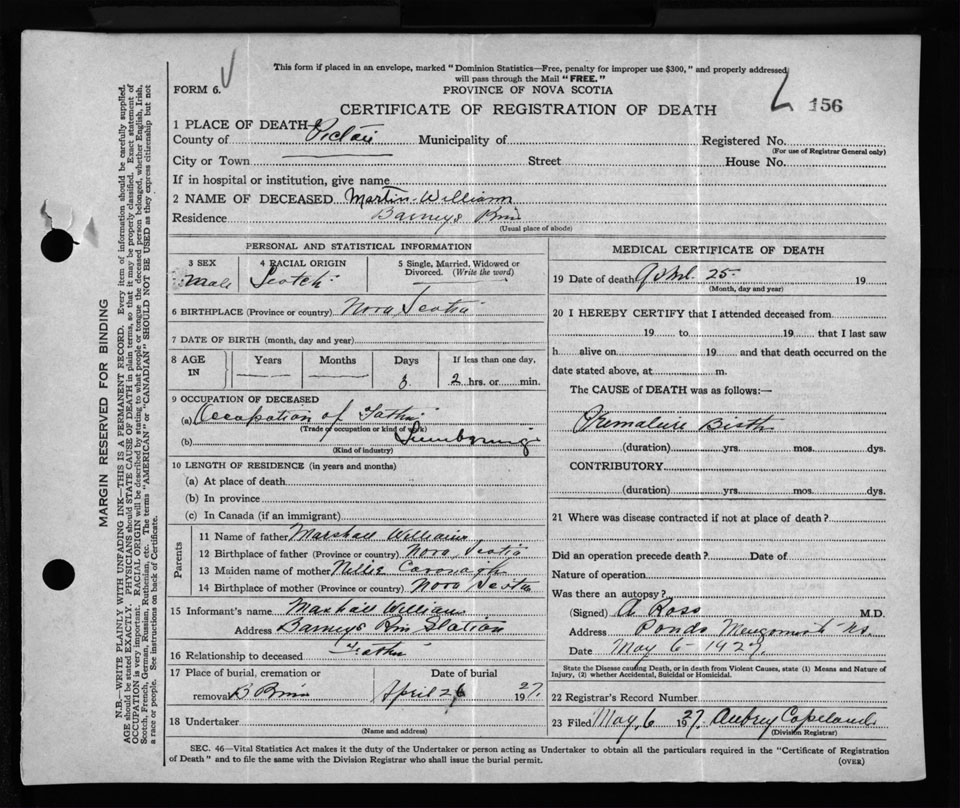 This form if placed in an envelope, marked "Dominion Statistics—Free, penalty for improper use $300," and properly addressed,
will pass through the Mail "FREE."
FORM 6.
PROVINCE OF NOVA SCOTIA
CERTIFICATE OF REGISTRATION OF DEATH
156
1 PLACE OF DEATH
County of Pictou Municipality of Registered No.
(For use of Registrar General only)
City or Town Street House No.
If in hospital or institution, give name
2 NAME OF DECEASED Martin Williams
Residence Barneys
(Usual place of abode)
PERSONAL AND STATISTICAL INFORMATION
3 SEX 4 RACIAL ORIGIN 5 Single, Married, Widowed or
Divorced. (Write the word)
Male Scotch
6 BIRTHPLACE (Province or country) Nova Scotia
7 DATE OF BIRTH (month, day and year)
8 AGE Years Months Days If less than one day,
IN 2 hrs. or min.
9 OCCUPATION OF DECEASED
(a) Occupation of Father
(Trade or occupation or kind of work)
(b) Lumbering
(Kind of industry)
10 LENGTH OF RESIDENCE (in years and months)
(a) At place of death
(b) In province
(c) In Canada (if an immigrant)
Parents
11 Name of father Marshall Williams
12 Birthplace of father (Province or country) Nova Scotia
13 Maiden name of mother Nellie Cavanagh
14 Birthplace of mother (Province or country) Nova Scotia
15 Informant's name Marshall Williams
Address Barneys Station
16 Relationship to deceased Father
17 Place of burial, cremation or Date of burial
removal April 26 1927.
18 Undertaker
(Name and address)
MEDICAL CERTIFICATE OF DEATH
19 Date of death April 25 19
(Month, day and year)
20 I HEREBY CERTIFY that I attended deceased from
19 to 19 that I last saw
h alive on 19 and that death occurred on the
date stated above, at m.
The CAUSE of DEATH was as follows:—
Premature Birth
(duration) yrs. mos. dys.
CONTRIBUTORY
(duration) yrs. mos. dys.
21 Where was disease contracted if not at place of death?
Did an operation precede death? Date of
Nature of operation
Was there an autopsy?
(Signed) A Ross M.D.
Address Ponds N.S.
Date May 6 - 1927
State the Disease causing Death, or in death from Violent Causes, state (1) Means and Nature of
Injury, (2) whether Accidental, Suicidal or Homicidal.
22 Registrar's Record Number
23 Filed May 6 1927. Aubrey Copeland
(Division Registrar)
SEC. 46—Vital Statistics Act makes it the duty of the Undertaker or person acting as Undertaker to obtain all the particulars required in the "Certificate of Registration
of Death" and to file the same with the Division Registrar who shall issue the burial permit.
(OVER)
MARGIN RESERVED FOR BINDING
N.B.—WRITE PLAINLY WITH UNFADING INK—THIS IS A PERMANENT RECORD. Every item of information should be carefully supplied.
AGE should be stated EXACTLY. PHYSICIANS should STATE CAUSE OF DEATH in plain terms, so that it may be properly classified. Exact statement of
OCCUPATION is very important. RACIAL ORIGIN will be described by stating to what people or tongue the deceased person belonged, whether English, Irish,
Scotch, French, German, Russian, Ruthenian, etc. The terms "AMERICAN" or "CANADIAN" SHOULD NOT BE USED as they express citizenship but not
a race or people. See instructions on back of Certificate.